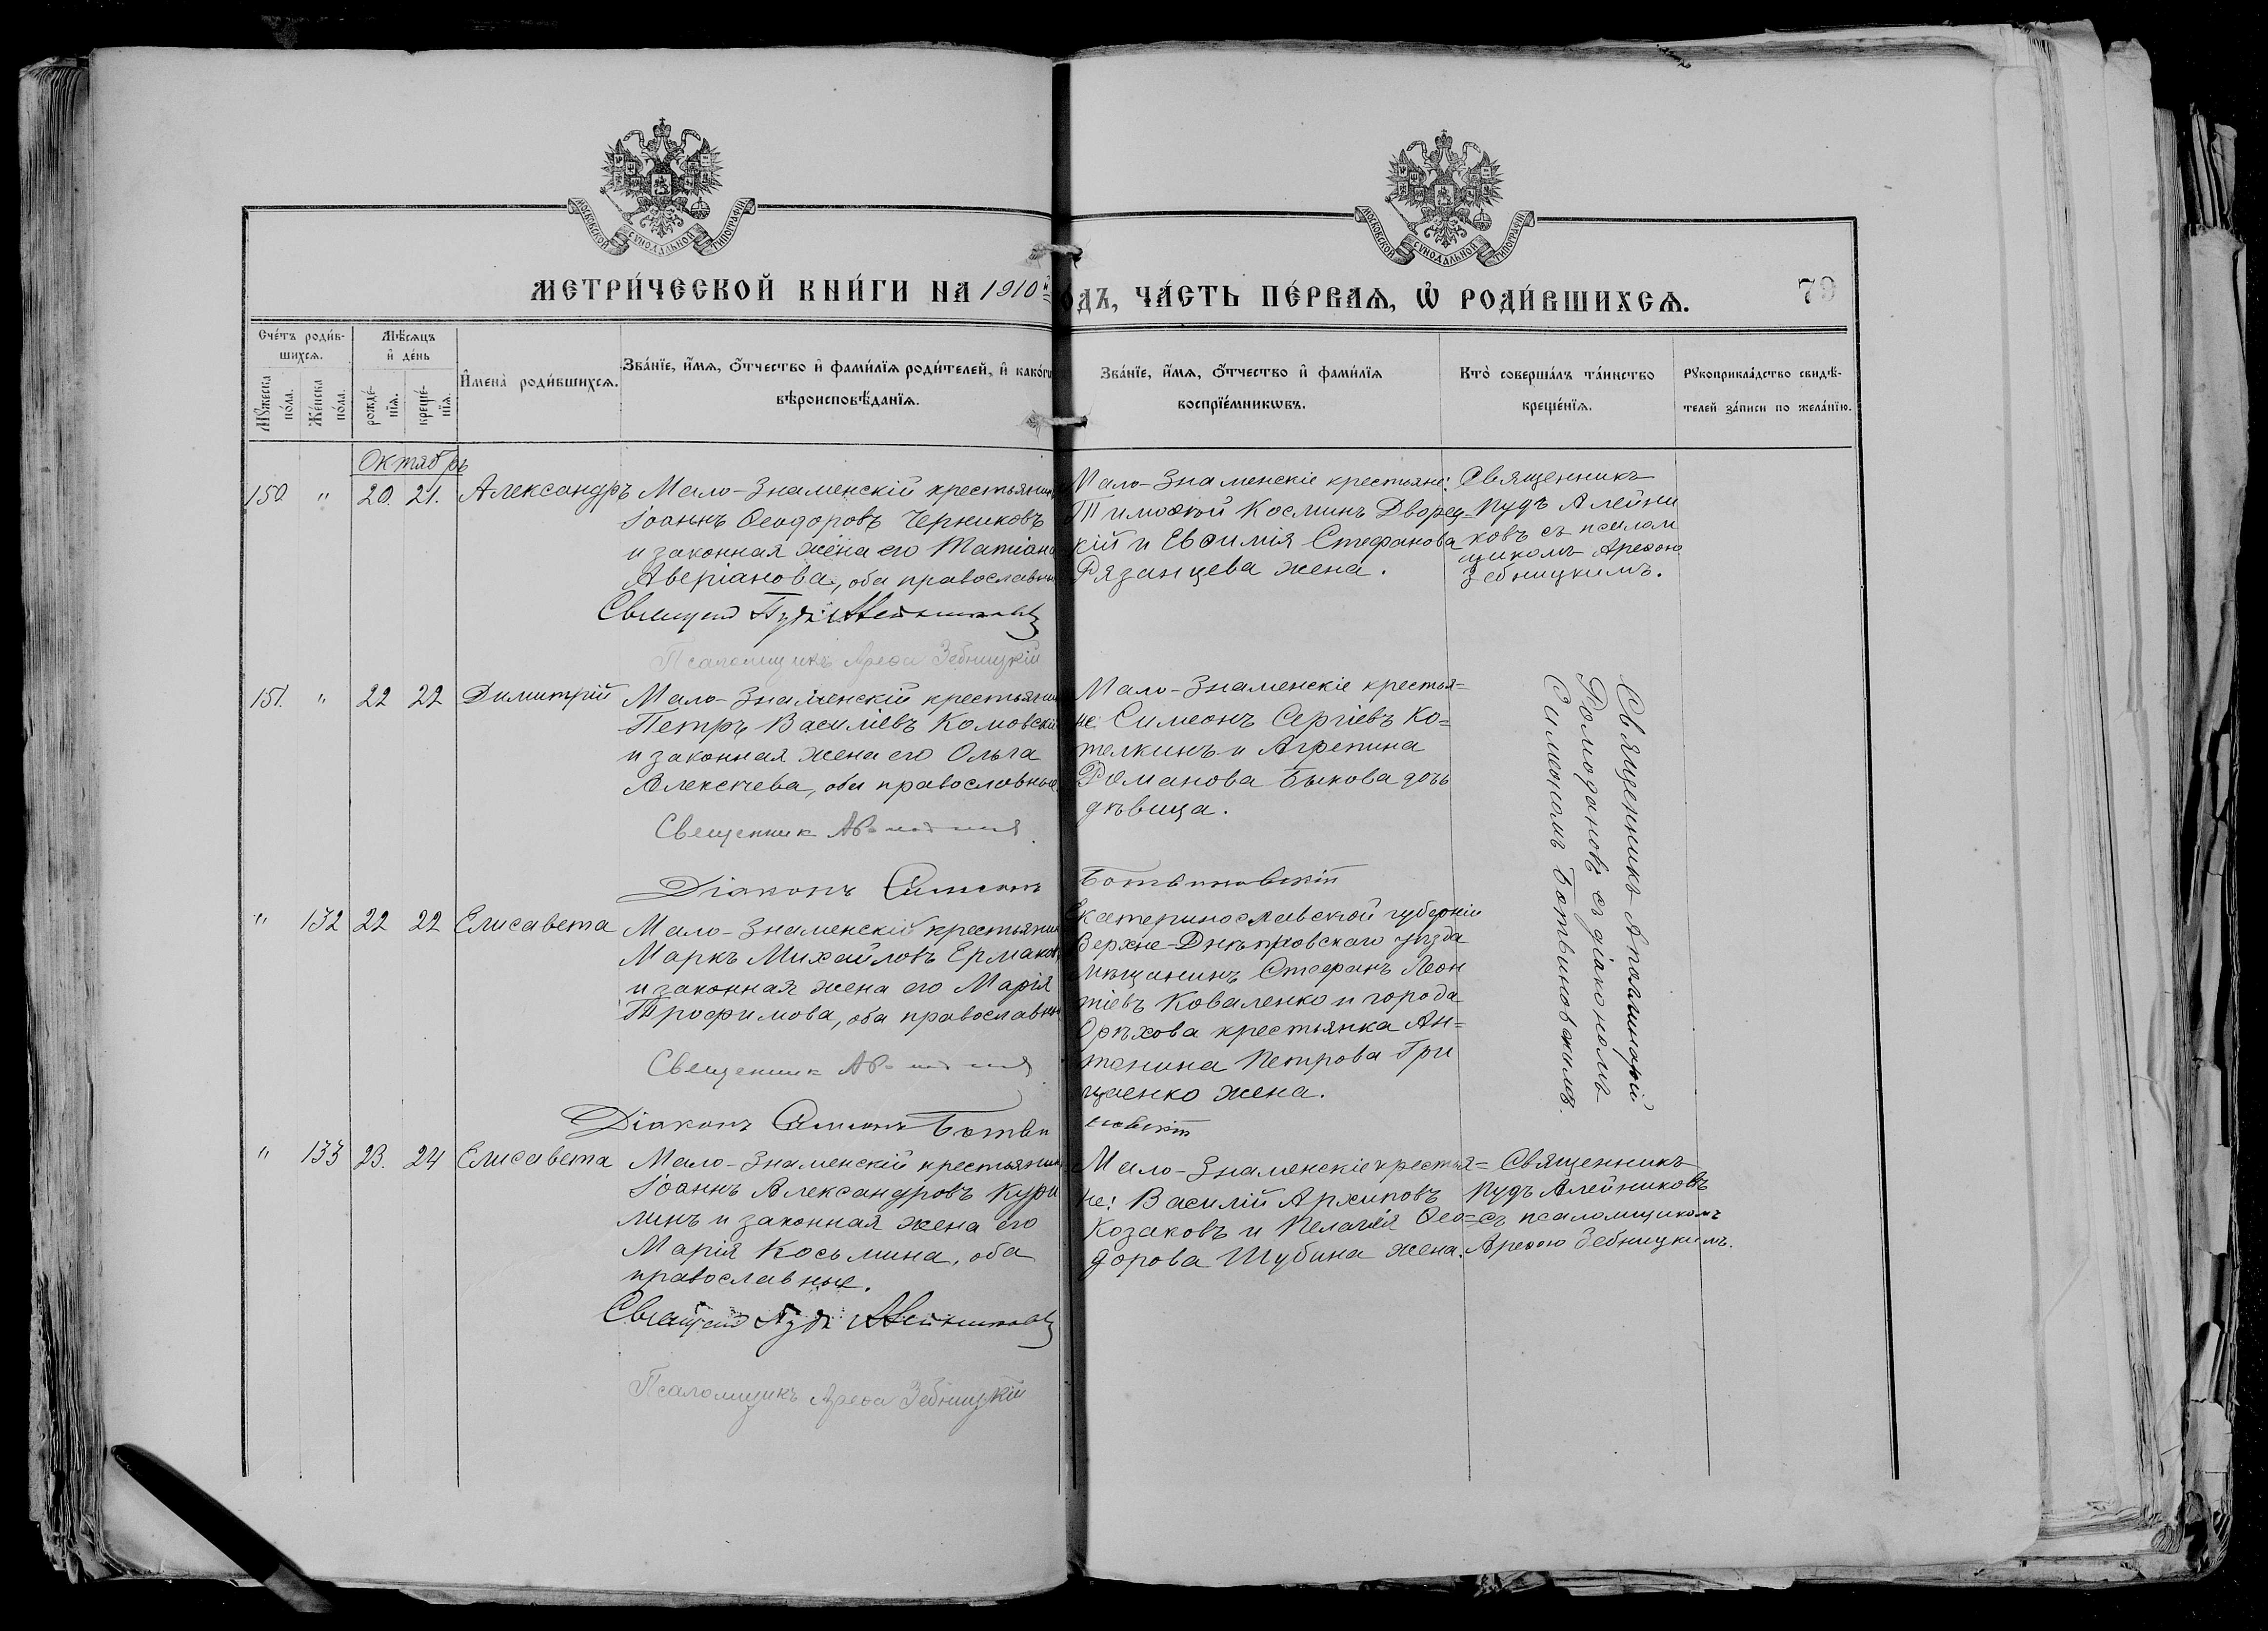 МОСКОВСКОЙ СѴНОДАЛЬНОЙ ТИПОГРАФІИ
МОСКОВСКОЙ СѴНОДАЛЬНОЙ ТИПОГРАФІИ
МЕТРИ́ЧЕСКОЙ КНИ́ГИ НА 1910й
ОДЪ, ЧА́СТЬ ПЕ́РВАѦ, Ѽ РОДИ́ВШИХСѦ.
79
Сче́тъ роди́в-
шихсѧ.
Мꙋ́жеска по́ла.
Же́нска по́ла.
Мѣ́сѧцъ
и҆ де́нь
рожде́-
нїѧ.
креще́-
нїѧ.
И҆мена̀ роди́вшихсѧ.
Зва́нїе, и҆́мѧ, ѻ҆́тчество и҆ фами́лїѧ роди́телей, и҆ како́гѡ
вѣроисповѣ́данїѧ.
Зва́нїе, и҆́мѧ, ѻ҆́тчество и҆ фами́лїѧ
воспрїе́мникѡвъ.
Кто̀ соверша́лъ та́инство
креще́нїѧ.
Рꙋкоприкла́дство свидѣ́-
телей за́писи по жела́нїю.
Октябрь
150. " 20. 21. Александръ
Мало-Знаменскій крестьянин
Іоаннъ Ѳеодоровъ Черниковъ
и законная жена его Татіана
Аверіанова, оба православны
Пудъ Алейниковъ
Псаломщикъ Арефа Зебницкій
Мало-Знаменскіе крестьяне:
Тимоѳей Косминъ Дворец=
кій и Евѳимія Стефанова
Рязанцева жена.
Священникъ
Пудъ Алейни
ковъ съ псалом
щикомъ Арефою
Зебницкимъ.
151. " 22 22 Димитрій
Мало-Знаменскій крестьянин
Петръ Василіевъ Комовскій
и законная жена его Ольга
Алексѣева, оба православные
Священник
Діаконъ Симеонъ
Ботвиновскій
Мало-Знаменскіе крестья=
не Симеонъ Сергіевъ Ко=
телкинъ и Агрепина
Романова Быкова дочь
дѣвица.
Священникъ Аполлинарій
Ромодановъ съ діакономъ
Симеономъ Ботвиновскимъ.
" 132 22 22 Елисавета
Мало-Знаменскій крестьянин
Маркъ Михайловъ Ермаков
и законная жена его Марія
Трофимова, оба православны
Священник
Діаконъ Симеонъ Ботви
новскій
Екатеринославской губерніи
Верхне-Днѣпровскаго уѣзда
мѣщанинъ Стефанъ Леон
тіевъ Коваленко и города
Орѣхова крестьянка Ан=
тонина Петрова Гри
щенко жена.
" 133 23. 24 Елисавета
Мало-Знаменскій крестьянин
Іоаннъ Александровъ Кури
линъ и законная жена его
Марія Косьмина, оба
православные.
Пудъ Алейниковъ
Псаломщикъ Арефа Зебницкій
Мало-Знаменскіе крестья=
не: Василій Архиповъ
Козаковъ и Пелагія Ѳео=
дорова Шубина жена.
Священникъ
Пудъ Алейниковъ
съ псаломщикомъ
Арефою Зебницкимъ.